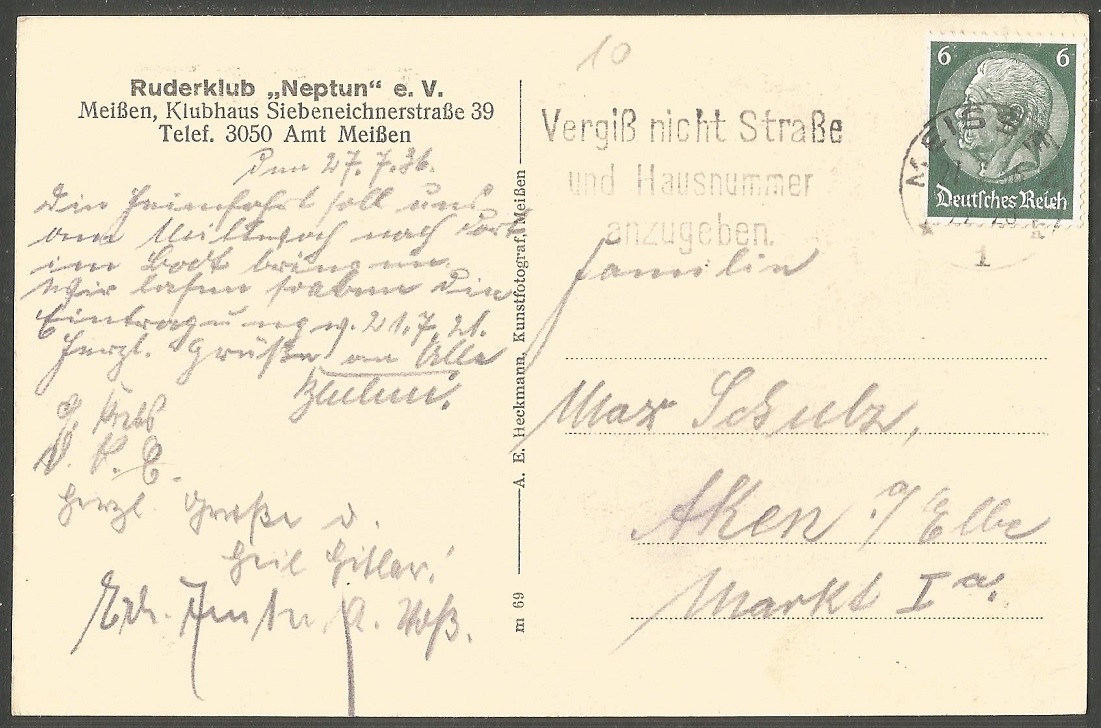 Ruderklub „Neptun“ e. V.
Meißen, Klubhaus Siebeneichnerstraße 39
Telef. 3050 Amt Meißen
Den 27. 7. 36.
Die Heimfahrt soll uns
am Mittwoch nach dort
im Boot bringen.
Wir lasen soeben die
Eintragung v. 21. 7. 21.
Herzl. Grüße an Alle
Herzl. Grüße u.
Heil Hitler!
A. Voß.
m 69
A. E. Heckmann, Kunstfotograf, Meißen
10
Vergiß nicht Straße
und Hausnummer
anzugeben.
6 6
Deutsches Reich
MEISSEN
1
Familie
Max Schulz,
Aken a/Elbe
Markt I a.